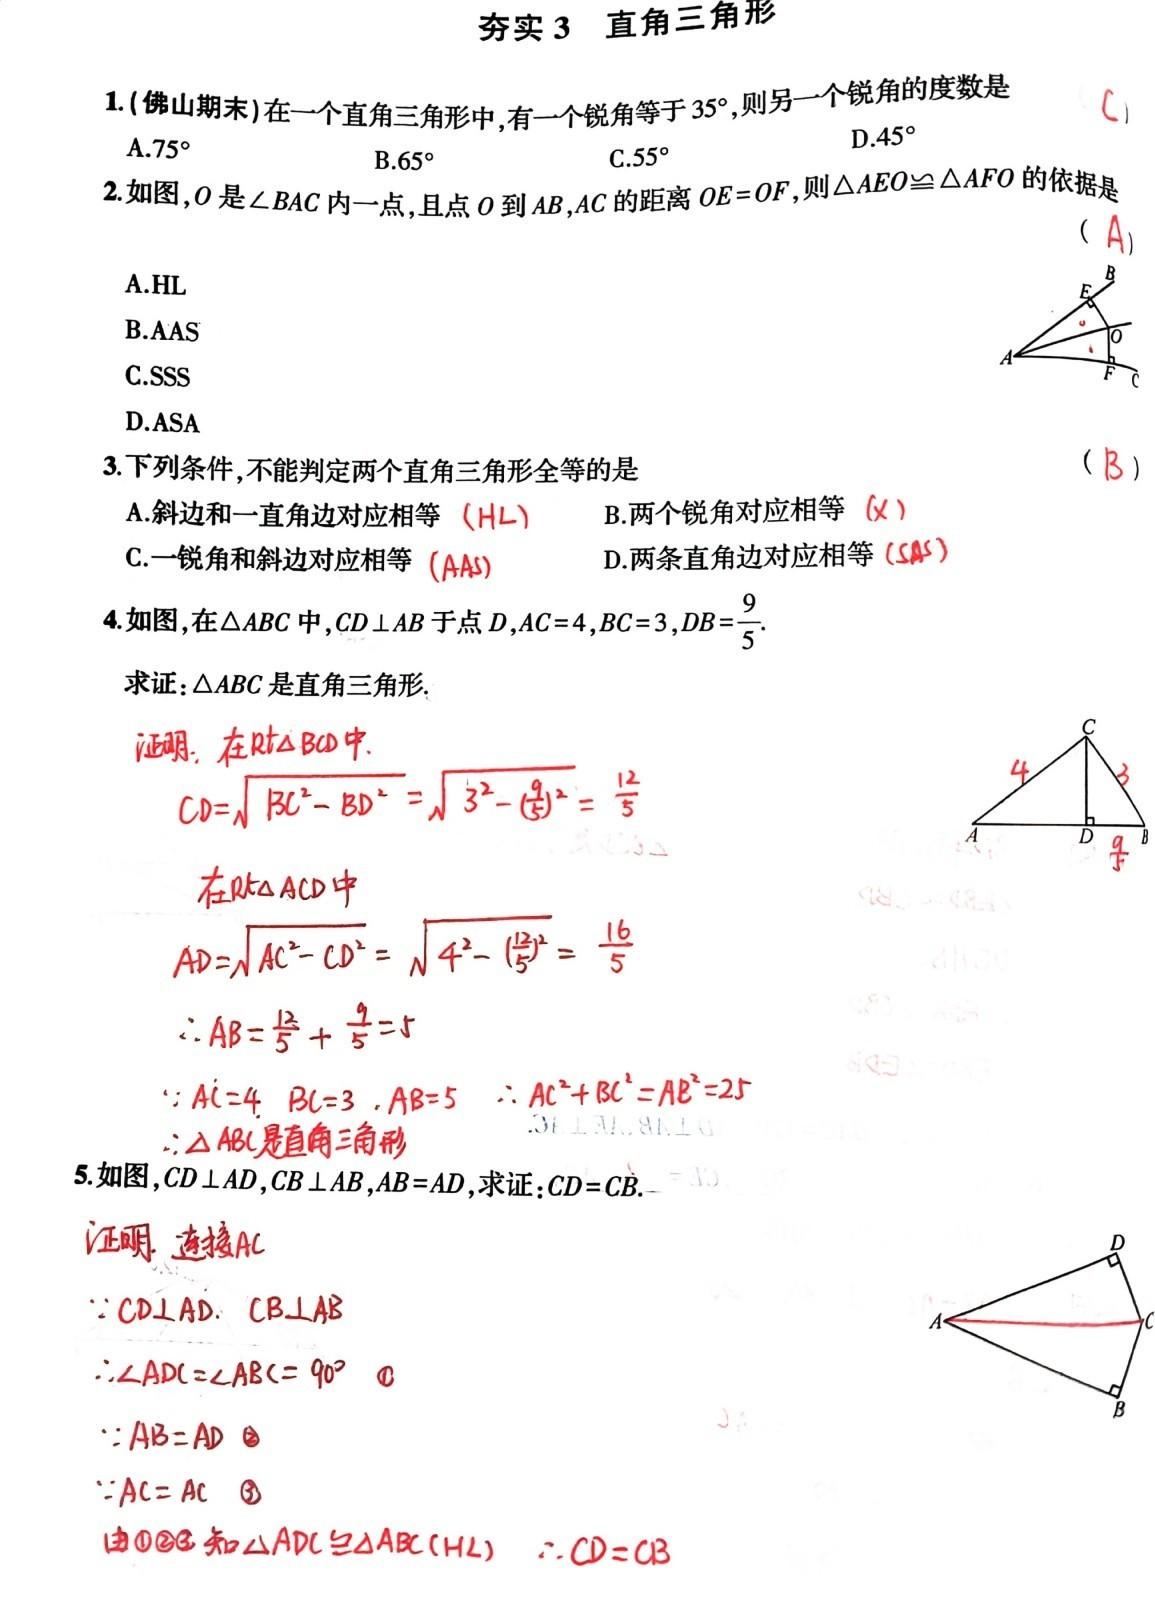 夯实3 直角三角形
1.(佛山期末)在一个直角三角形中,有一个锐角等于35°,则另一个锐角的度数是 (C)
A.75° B.65° C.55° D.45°
2.如图,O是∠BAC内一点,且点O到AB,AC的距离OE=OF,则△AEO≌△AFO的依据是
(A)
A.HL
B.AAS
C.SSS
D.ASA
B
E
O
A
F
C
3.下列条件,不能判定两个直角三角形全等的是 (B)
A.斜边和一直角边对应相等 (HL) B.两个锐角对应相等 (X)
C.一锐角和斜边对应相等 (AAS) D.两条直角边对应相等 (SAS)
4.如图,在△ABC中,CD⊥AB于点D,AC=4,BC=3,DB=9/5.
求证:△ABC是直角三角形.
证明. 在Rt△BCD中.
CD=√(BC²-BD²)=√(3²-(9/5)²)=12/5
在Rt△ACD中
AD=√(AC²-CD²)=√(4²-(12/5)²)=16/5
∴AB=12/5+9/5=5
∵AC=4 BC=3 .AB=5 ∴AC²+BC²=AB²=25
∴△ABC是直角三角形
C
4 3
A D B
9/5
5.如图,CD⊥AD,CB⊥AB,AB=AD,求证:CD=CB.
证明. 连接AC
∵CD⊥AD. CB⊥AB
∴∠ADC=∠ABC=90° ①
∵AB=AD ②
∵AC=AC ③
由①②③知△ADC≌△ABC(HL) ∴CD=CB
D
A C
B